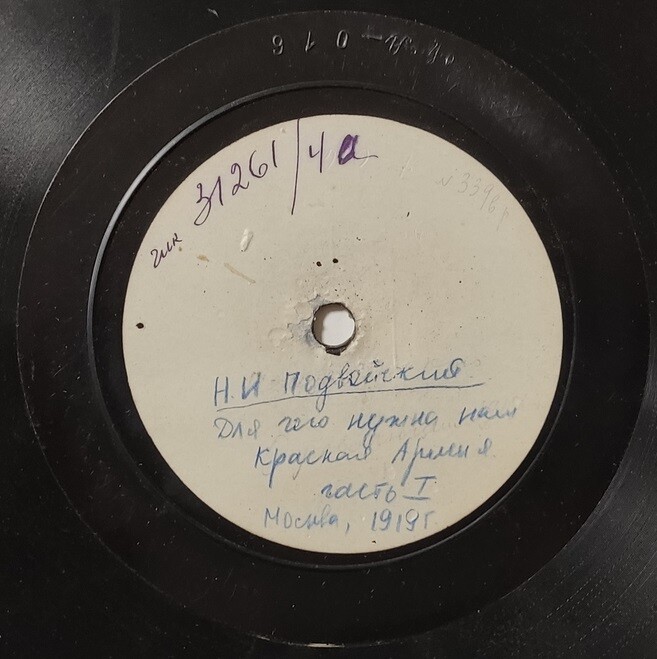 гик 31261/4а
Н.И Подвойский
Для чего нужна нам
Красная Армия
часть I
Москва, 1919г.